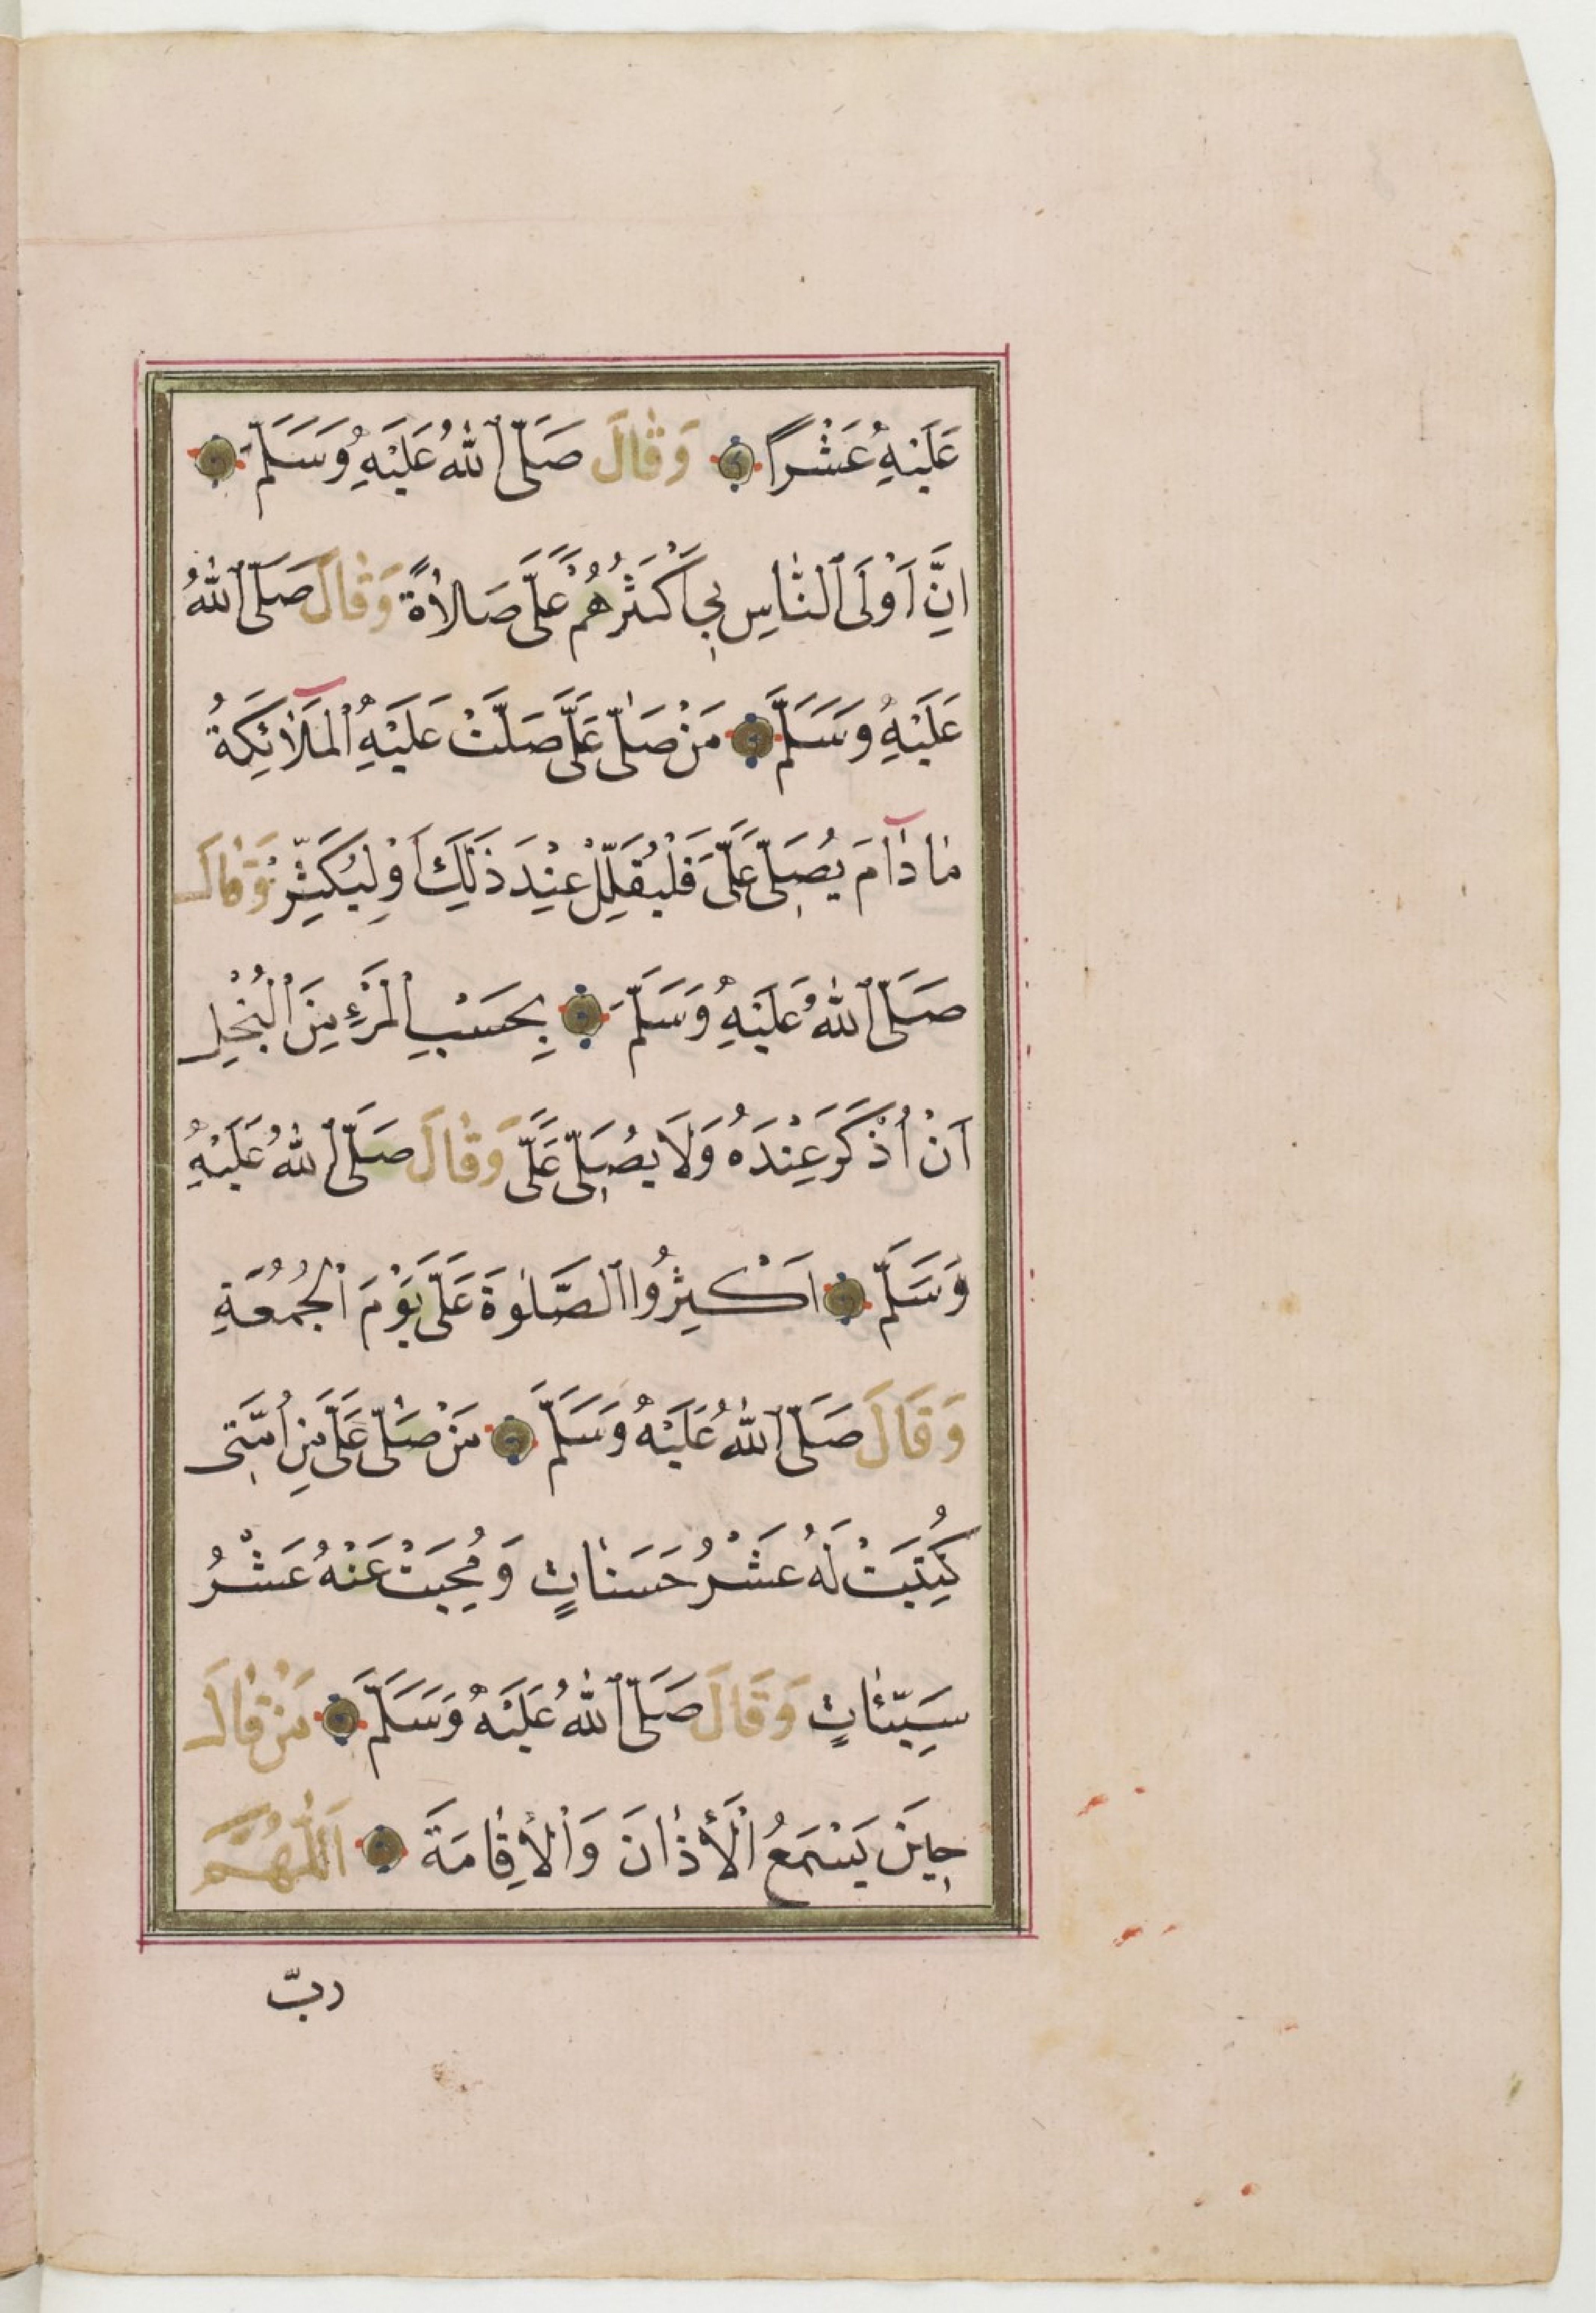 عَلَيْهِ عَشْرًا وَقَالَ صَلَّى اللهُ عَلَيْهِ وَسَلَّمَ
اِنَّ اَوْلَى النَّاسِ بِي اَكْثَرُهُمْ عَلَيَّ صَلَاةً وَقَالَ صَلَّى اللهُ
عَلَيْهِ وَسَلَّمَ مَنْ صَلَّى عَلَيَّ صَلَّتْ عَلَيْهِ الْمَلَائِكَةُ
مَا دَامَ يُصَلِّي عَلَيَّ فَلْيُقَلِّلْ عِنْدَ ذٰلِكَ اَوْ لِيُكَثِّرْ وَقَالَ
صَلَّى اللهُ عَلَيْهِ وَسَلَّمَ بِحَسْبِ الْمَرْءِ مِنَ الْبُخْلِ
اَنْ اُذْكَرَ عِنْدَهُ وَلَا يُصَلِّي عَلَيَّ وَقَالَ صَلَّى اللهُ عَلَيْهِ
وَسَلَّمَ اَكْثِرُوا الصَّلٰوةَ عَلَيَّ يَوْمَ الْجُمُعَةِ
وَقَالَ صَلَّى اللهُ عَلَيْهِ وَسَلَّمَ مَنْ صَلَّى عَلَيَّ مِنْ اُمَّتِي
كُتِبَتْ لَهُ عَشْرُ حَسَنَاتٍ وَمُحِيَتْ عَنْهُ عَشْرُ
سَيِّئَاتٍ وَقَالَ صَلَّى اللهُ عَلَيْهِ وَسَلَّمَ مَنْ قَالَ
حِينَ يَسْمَعُ الْأَذَانَ وَالْاِقَامَةَ اَللّٰهُمَّ
ربّ